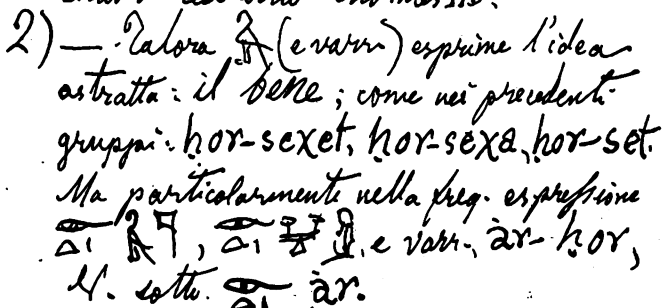 2) — . Talora (e varr.) esprime l'idea
astratta: il bene; come nei precedenti
gruppi: ḥor-seχet, ḥor-seχa, ḥor-set.
Ma particolarmente nella freq. espressione
, e varr., àr-ḥor,
V. sotto. àr.